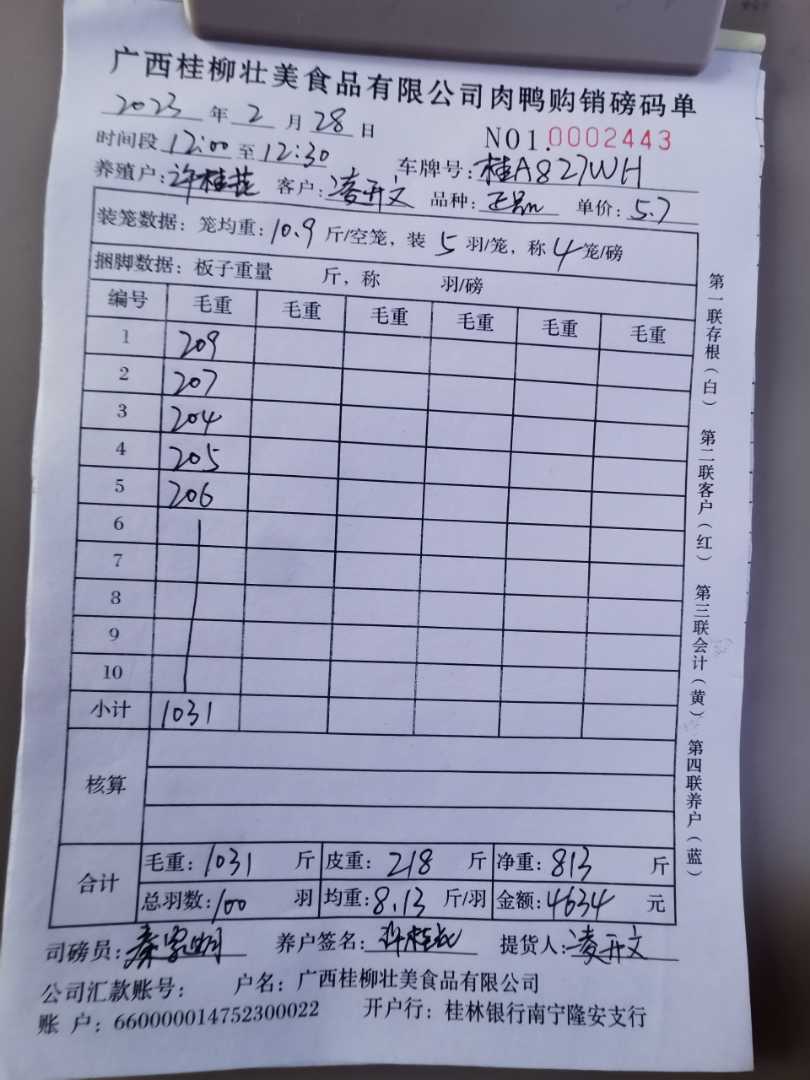 广西桂柳壮美食品有限公司肉鸭购销磅码单
2023 年 2 月 28 日 NO1.0002443
时间段 12:00 至 12:30 车牌号: 桂A827WH
养殖户: 许桂花 客户: 凌开文 品种: 单价: 5.7
装笼数据: 笼均重: 10.9 斤/空笼, 装 5 羽/笼, 称 4 笼/磅
捆脚数据: 板子重量 斤, 称 羽/磅
编号 毛重 毛重 毛重 毛重 毛重 毛重
1 209
2 207
3 204
4 205
5 206
6
7
8
9
10
小计 1031
核算
合计 毛重: 1031 斤 皮重: 218 斤 净重: 813 斤
总羽数: 100 羽 均重: 8.13 斤/羽 金额: 4634 元
司磅员: 养户签名: 提货人: 凌开文
公司汇款账号: 户名: 广西桂柳壮美食品有限公司
账 户: 660000014752300022 开户行: 桂林银行南宁隆安支行
第一联存根(白) 第二联客户(红) 第三联会计(黄) 第四联养户(蓝)